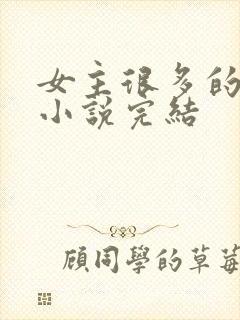 女主很多的
小說完結
顧同學的草莓